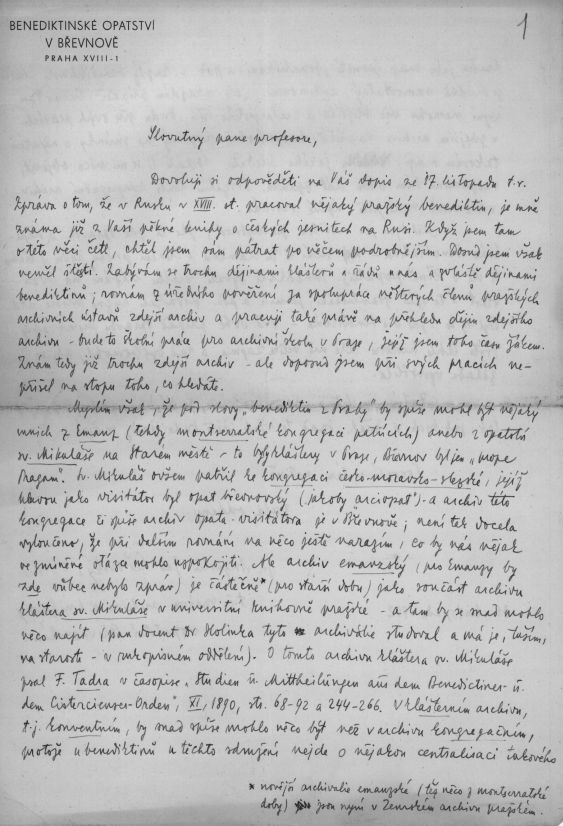 BENEDIKTINSKÉ OPATSTVÍ
V BŘEVNOVĚ
PRAHA XVIII-1
1
Slovutný pane profesore,
Dovoluji si odpověděti na Váš dopis ze 17. listopadu t.r.
Zpráva o tom, že v Rusku v XVIII. st. pracoval nějaký pražský benediktin, je mně
známa již z Vaší pěkné knihy o českých jesuitech na Rusi. Když jsem tam
o této věci četl, chtěl jsem sám pátrat po něčem podrobnějším. Dosud jsem však
neměl štěstí. Zabývám se trochu dějinami klášterů a řádů u nás a zvláště dějinami
benediktinů; rovnám z úředního pověření za spolupráce některých členů pražských
archivních ústavů zdejší archiv a pracuji také právě na přehledu dějin zdejšího
archivu - bude to školní práce pro archivní školu v Praze, jejíž jsem toho času žákem.
Znám tedy již trochu zdejší archiv - ale doposud jsem při svých pracích ne-
přišel na stopu toho, co hledáte.
Myslím však, že pod slovy „benediktin z Prahy" by spíše mohl být nějaký
mnich z Emauz (tehdy montserratské kongregaci patřících) anebo z opatství
sv. Mikuláše na Starém městě - to byly kláštery v Praze, Břevnov byl jen „prope
Pragam". Sv. Mikuláš ovšem patřil ke kongregaci česko-moravsko-slezské, jejíž
hlavou jako visitátor byl opat břevnovský („jakoby arciopat") - a archiv této
kongregace či spíše archiv opata-visitátora je v Břevnově; není tak docela
vyloučeno, že při dalším rovnání na něco ještě narazím, co by nás nějak
ve zmíněné otázce mohlo uspokojiti. Ale archiv emauzský (pro Emauzy by
zde vůbec nebylo zpráv) je částečně* (pro starší dobu) jako součást archivu
kláštera sv. Mikuláše v universitní knihovně pražské - a tam by se snad mohlo
něco najít (pan docent Dr Holinka tyto archiválie studoval a má je, tuším,
na starosti - v rukopisném oddělení). O tomto archivu kláštera sv. Mikuláše
psal F. Tadra v časopise „Studien u. Mittheilungen aus dem Benedictiner- u.
dem Cistercienser-Orden", XI, 1890, str. 68-92 a 244-266. V klášterním archivu,
t.j. konventním, by snad spíše mohlo něco být než v archivu kongregačním,
protože u benediktinů u těchto sdružení nejde o nějakou centralisaci takového
* novější archivalie emauzské (též něco z montserratské
doby) jsou nyní v Zemském archivu pražském.